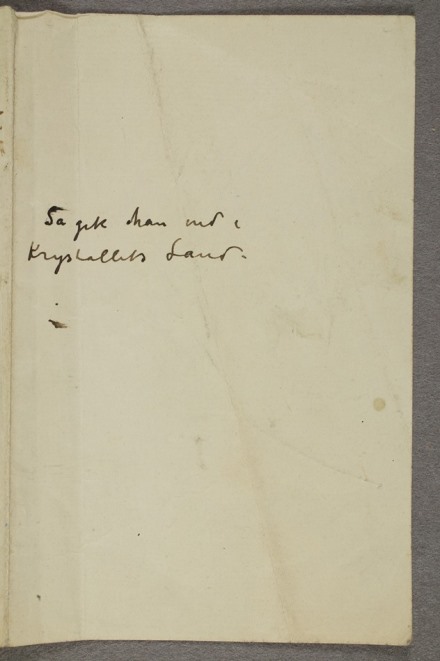 Så gik han ind i
Krystallets Land.